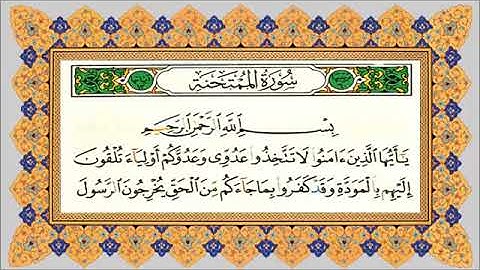 سُورَةُ المُمْتَحنَة
بِسْمِ ٱللَّهِ ٱلرَّحْمَٰنِ ٱلرَّحِيمِ
يَٰٓأَيُّهَا ٱلَّذِينَ ءَامَنُوا۟ لَا تَتَّخِذُوا۟ عَدُوِّى وَعَدُوَّكُمْ أَوْلِيَآءَ تُلْقُونَ
إِلَيْهِم بِٱلْمَوَدَّةِ وَقَدْ كَفَرُوا۟ بِمَا جَآءَكُم مِّنَ ٱلْحَقِّ يُخْرِجُونَ ٱلرَّسُولَ